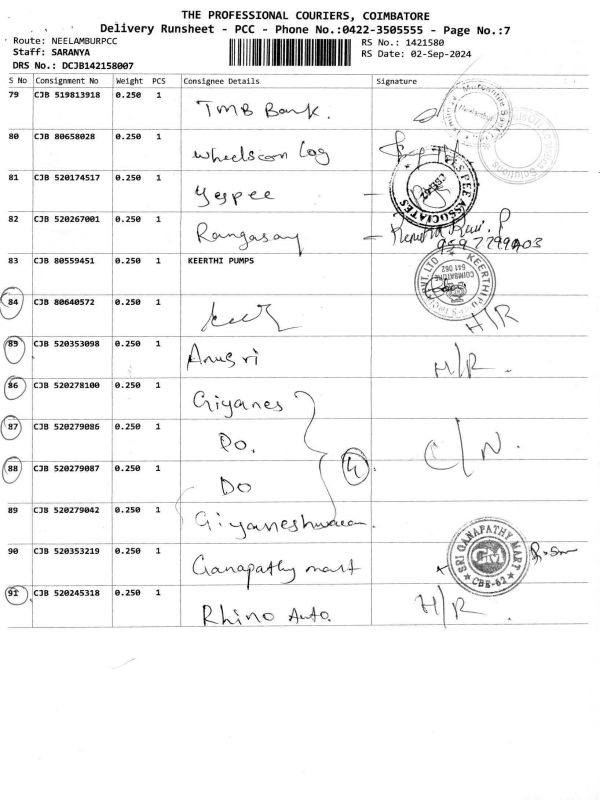 THE PROFESSIONAL COURIERS, COIMBATORE
Delivery Runsheet - PCC - Phone No.:0422-3505555 - Page No.:7
Route: NEELAMBURPCC RS No.: 1421580
Staff: SARANYA RS Date: 02-Sep-2024
DRS No.: DCJB142158007
S No Consignment No Weight PCS Consignee Details Signature
79 CJB 519813918 0.250 1 TMB Bank.
80 CJB 80658028 0.250 1 Wheelscon Log
81 CJB 520174517 0.250 1 Yespee
YES PEE ASSOCIATES
82 CJB 520267001 0.250 1 Rangasay
83 CJB 80559451 0.250 1 KEERTHI PUMPS
COIMBATORE
641 062
84 CJB 80640572 0.250 1 H/R
85 CJB 520353098 0.250 1 Anusri H/R.
86 CJB 520278100 0.250 1 Giyanes
87 CJB 520279086 0.250 1 Do. C/N.
88 CJB 520279087 0.250 1 Do 4
89 CJB 520279042 0.250 1
90 CJB 520353219 0.250 1 Ganapathy mart
SRI GANAPATHY MART
CBE-62
91 CJB 520245318 0.250 1 Rhino Auto. H/R